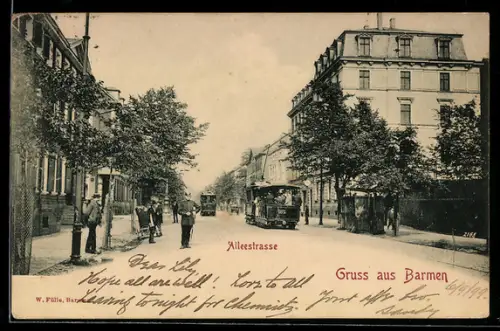 2186
Alleestrasse
Gruss aus Barmen
W. Fülle, Barmen
Dear Lily,
Hope all are well! Love to all
Leaving to-night for Chemnitz. Your aff. bro.